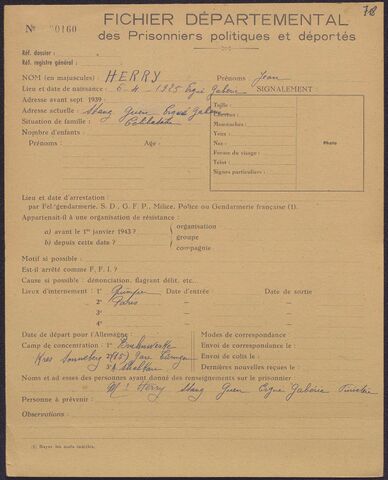 78
N° 0160
FICHIER DÉPARTEMENTAL
des Prisonniers politiques et déportés
Réf. dossier :
Réf. registre général :
NOM (en majuscules) : HERRY Prénoms Jean
Lieu et date de naissance : 6-4-1925 Ergué Gabéric SIGNALEMENT :
Adresse avant sept. 1939 :
Adresse actuelle : Stang Guen Ergué Gabéric
Situation de famille : Célibataire
Nombre d'enfants :
Prénoms : Age :
Taille :
Cheveux :
Moustaches :
Yeux :
Nez :
Forme du visage :
Teint :
Signes particuliers :
Photo
Lieu et date d'arrestation :
par Fel/gendarmerie, S. D., G. F. P., Milice, Police ou Gendarmerie française (1).
Appartenait-il à une organisation de résistance :
a) avant le 1er janvier 1943 ?
b) depuis cette date ?
organisation
groupe
compagnie
Motif si possible :
Est-il arrêté comme F. F. I. ?
Cause si possible : dénonciation, flagrant délit, etc.
Lieux d'internement : 1° Quimper Date d'entrée : Date de sortie
2° Paris
3°
4°
Date de départ pour l'Allemagne :
Camp de concentration : 1°
Kres Sonneberg 2° (15) Gare
3°
Modes de correspondance :
Envoi de correspondance le :
Envoi de colis le :
Dernières nouvelles reçues le :
Noms et ad esses des personnes ayant donné des renseignements sur le prisonnier :
Herry Stang Guen Ergué Gabéric Finistère
Personne à prévenir :
Observations :
(1) Rayer les mots inutiles.